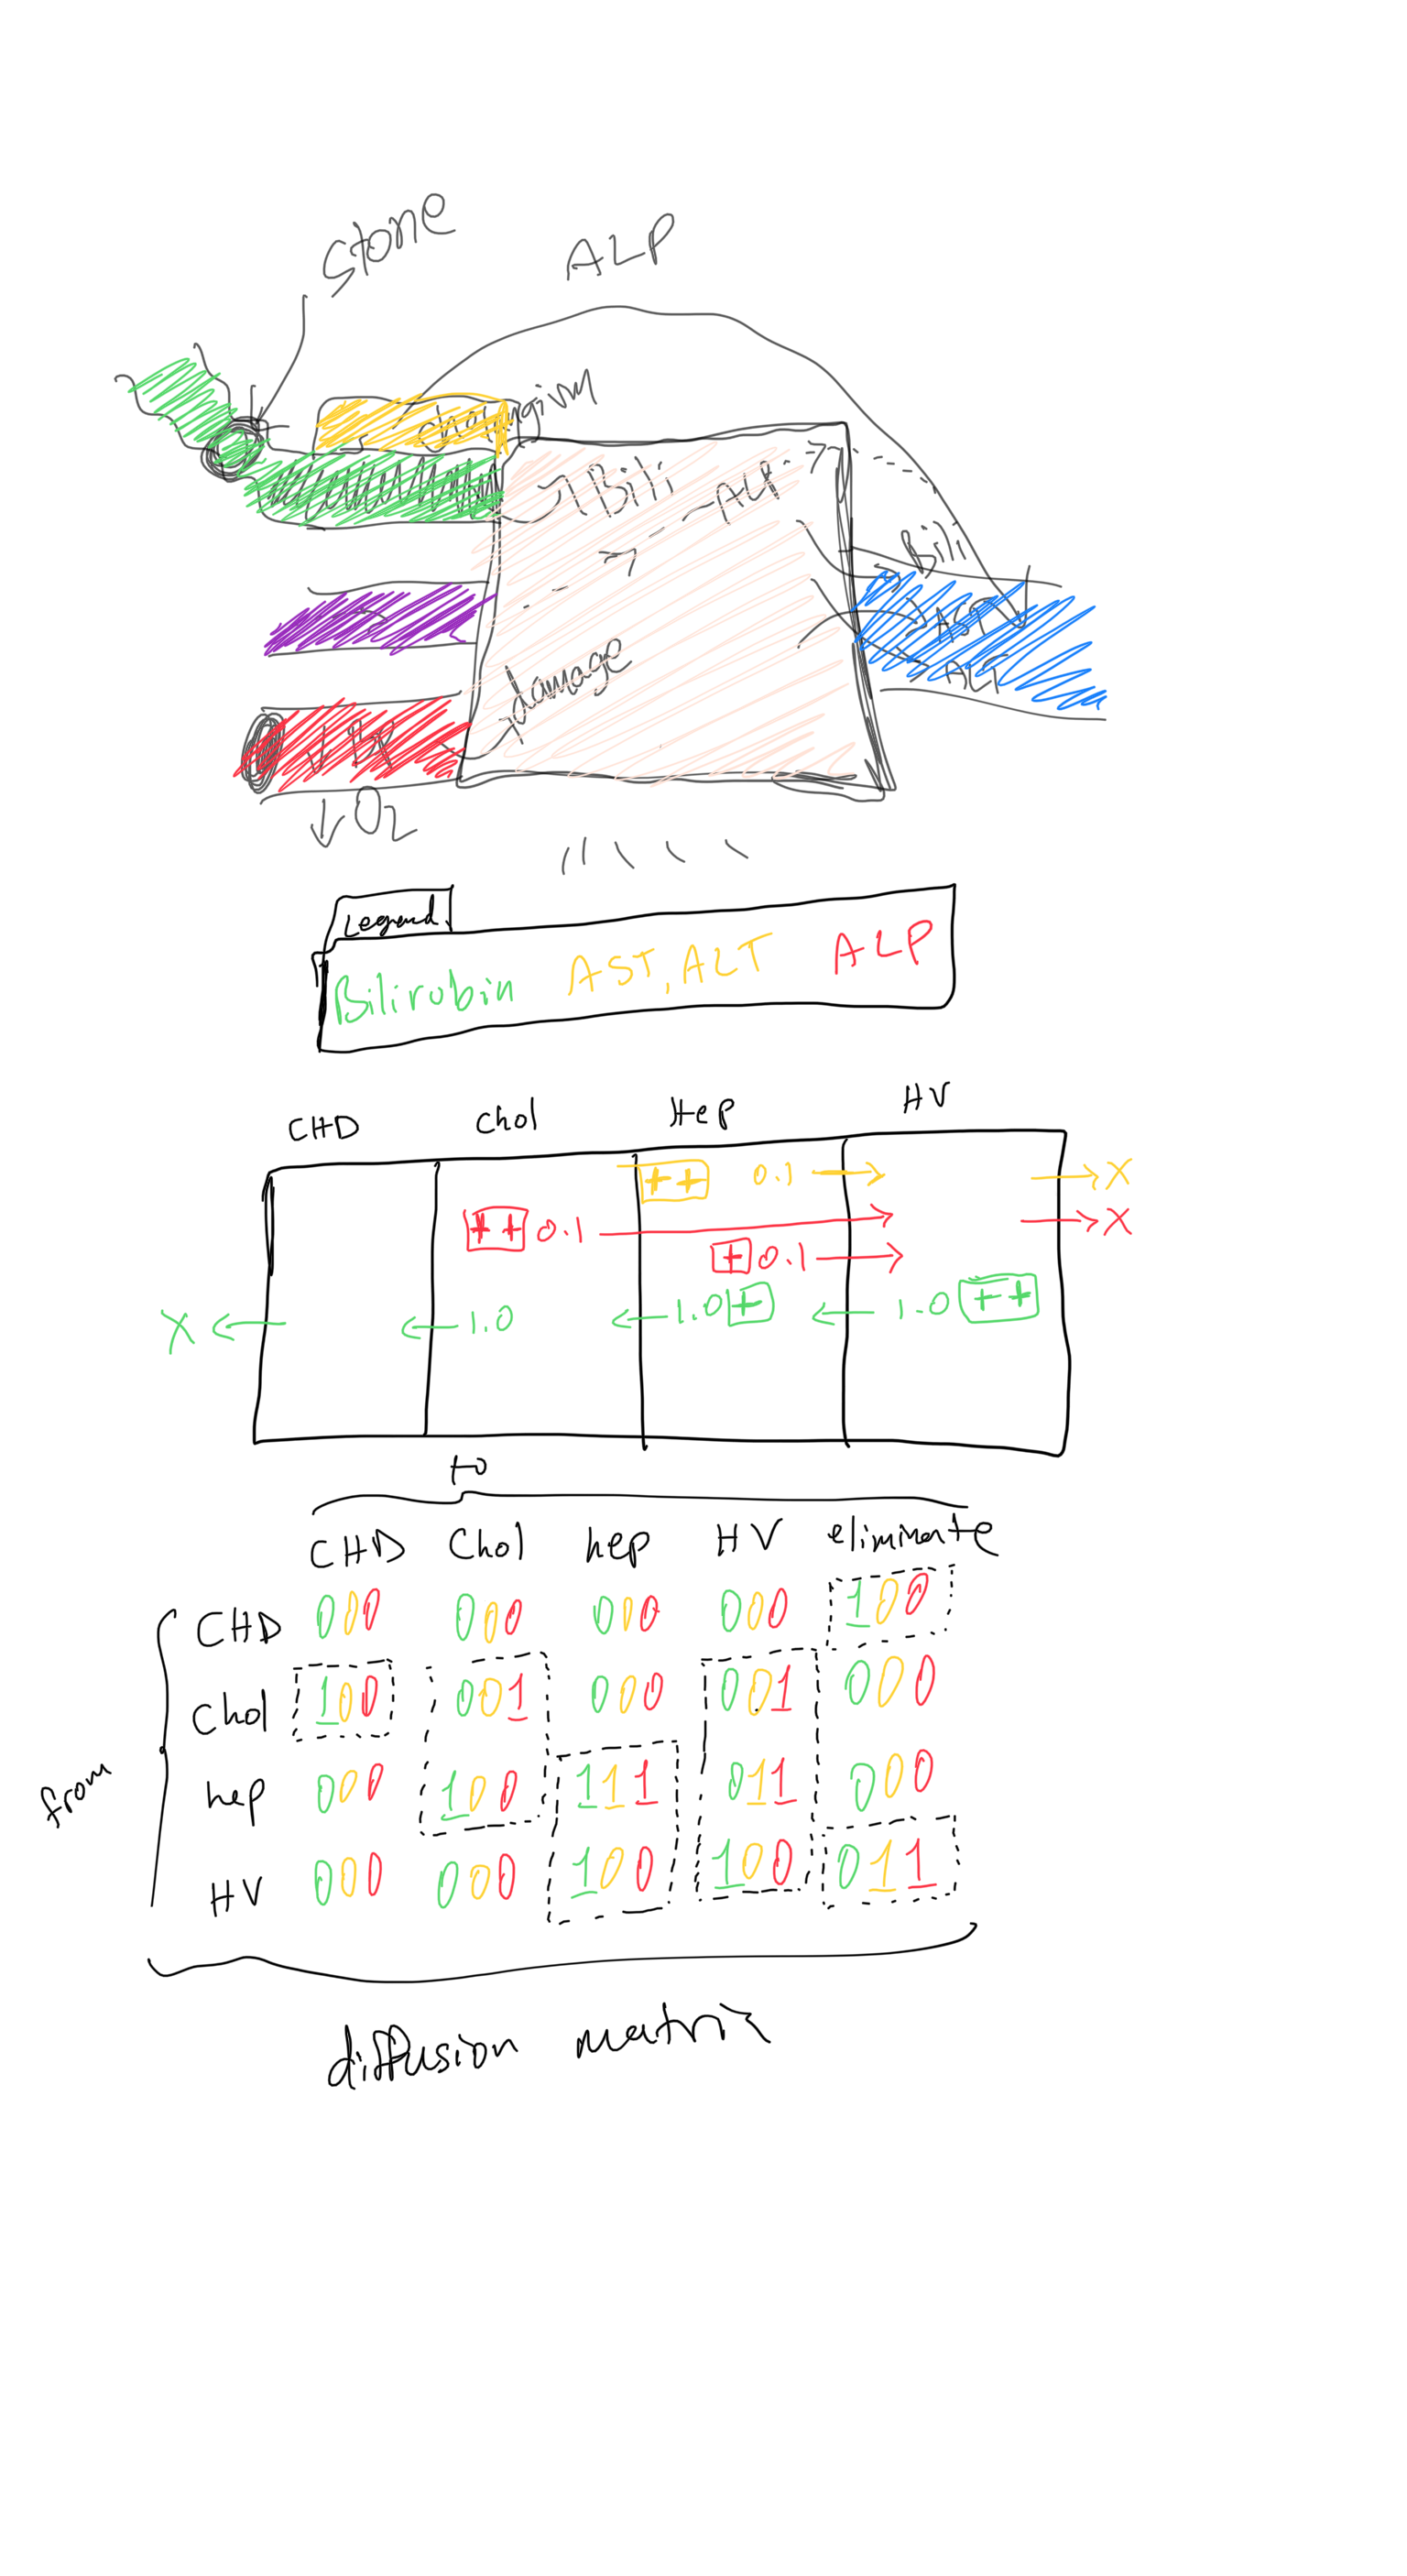 Stone
ALP
cholangium
Bili
ALP
Bili
AST
ALT
damage
↓ O2
Legend
Bilirubin AST, ALT ALP
CHD Chol Hep HV
++ 0.1 → → X
++ 0.1 → → X
+ 0.1 →
X ← ← 1.0 ← 1.0 + ← 1.0 ++
to
CHD Chol hep HV eliminate
CHD 000 000 000 000 100
Chol 100 001 000 001 000
from
hep 000 100 111 011 000
HV 000 000 100 100 011
diffusion matrix